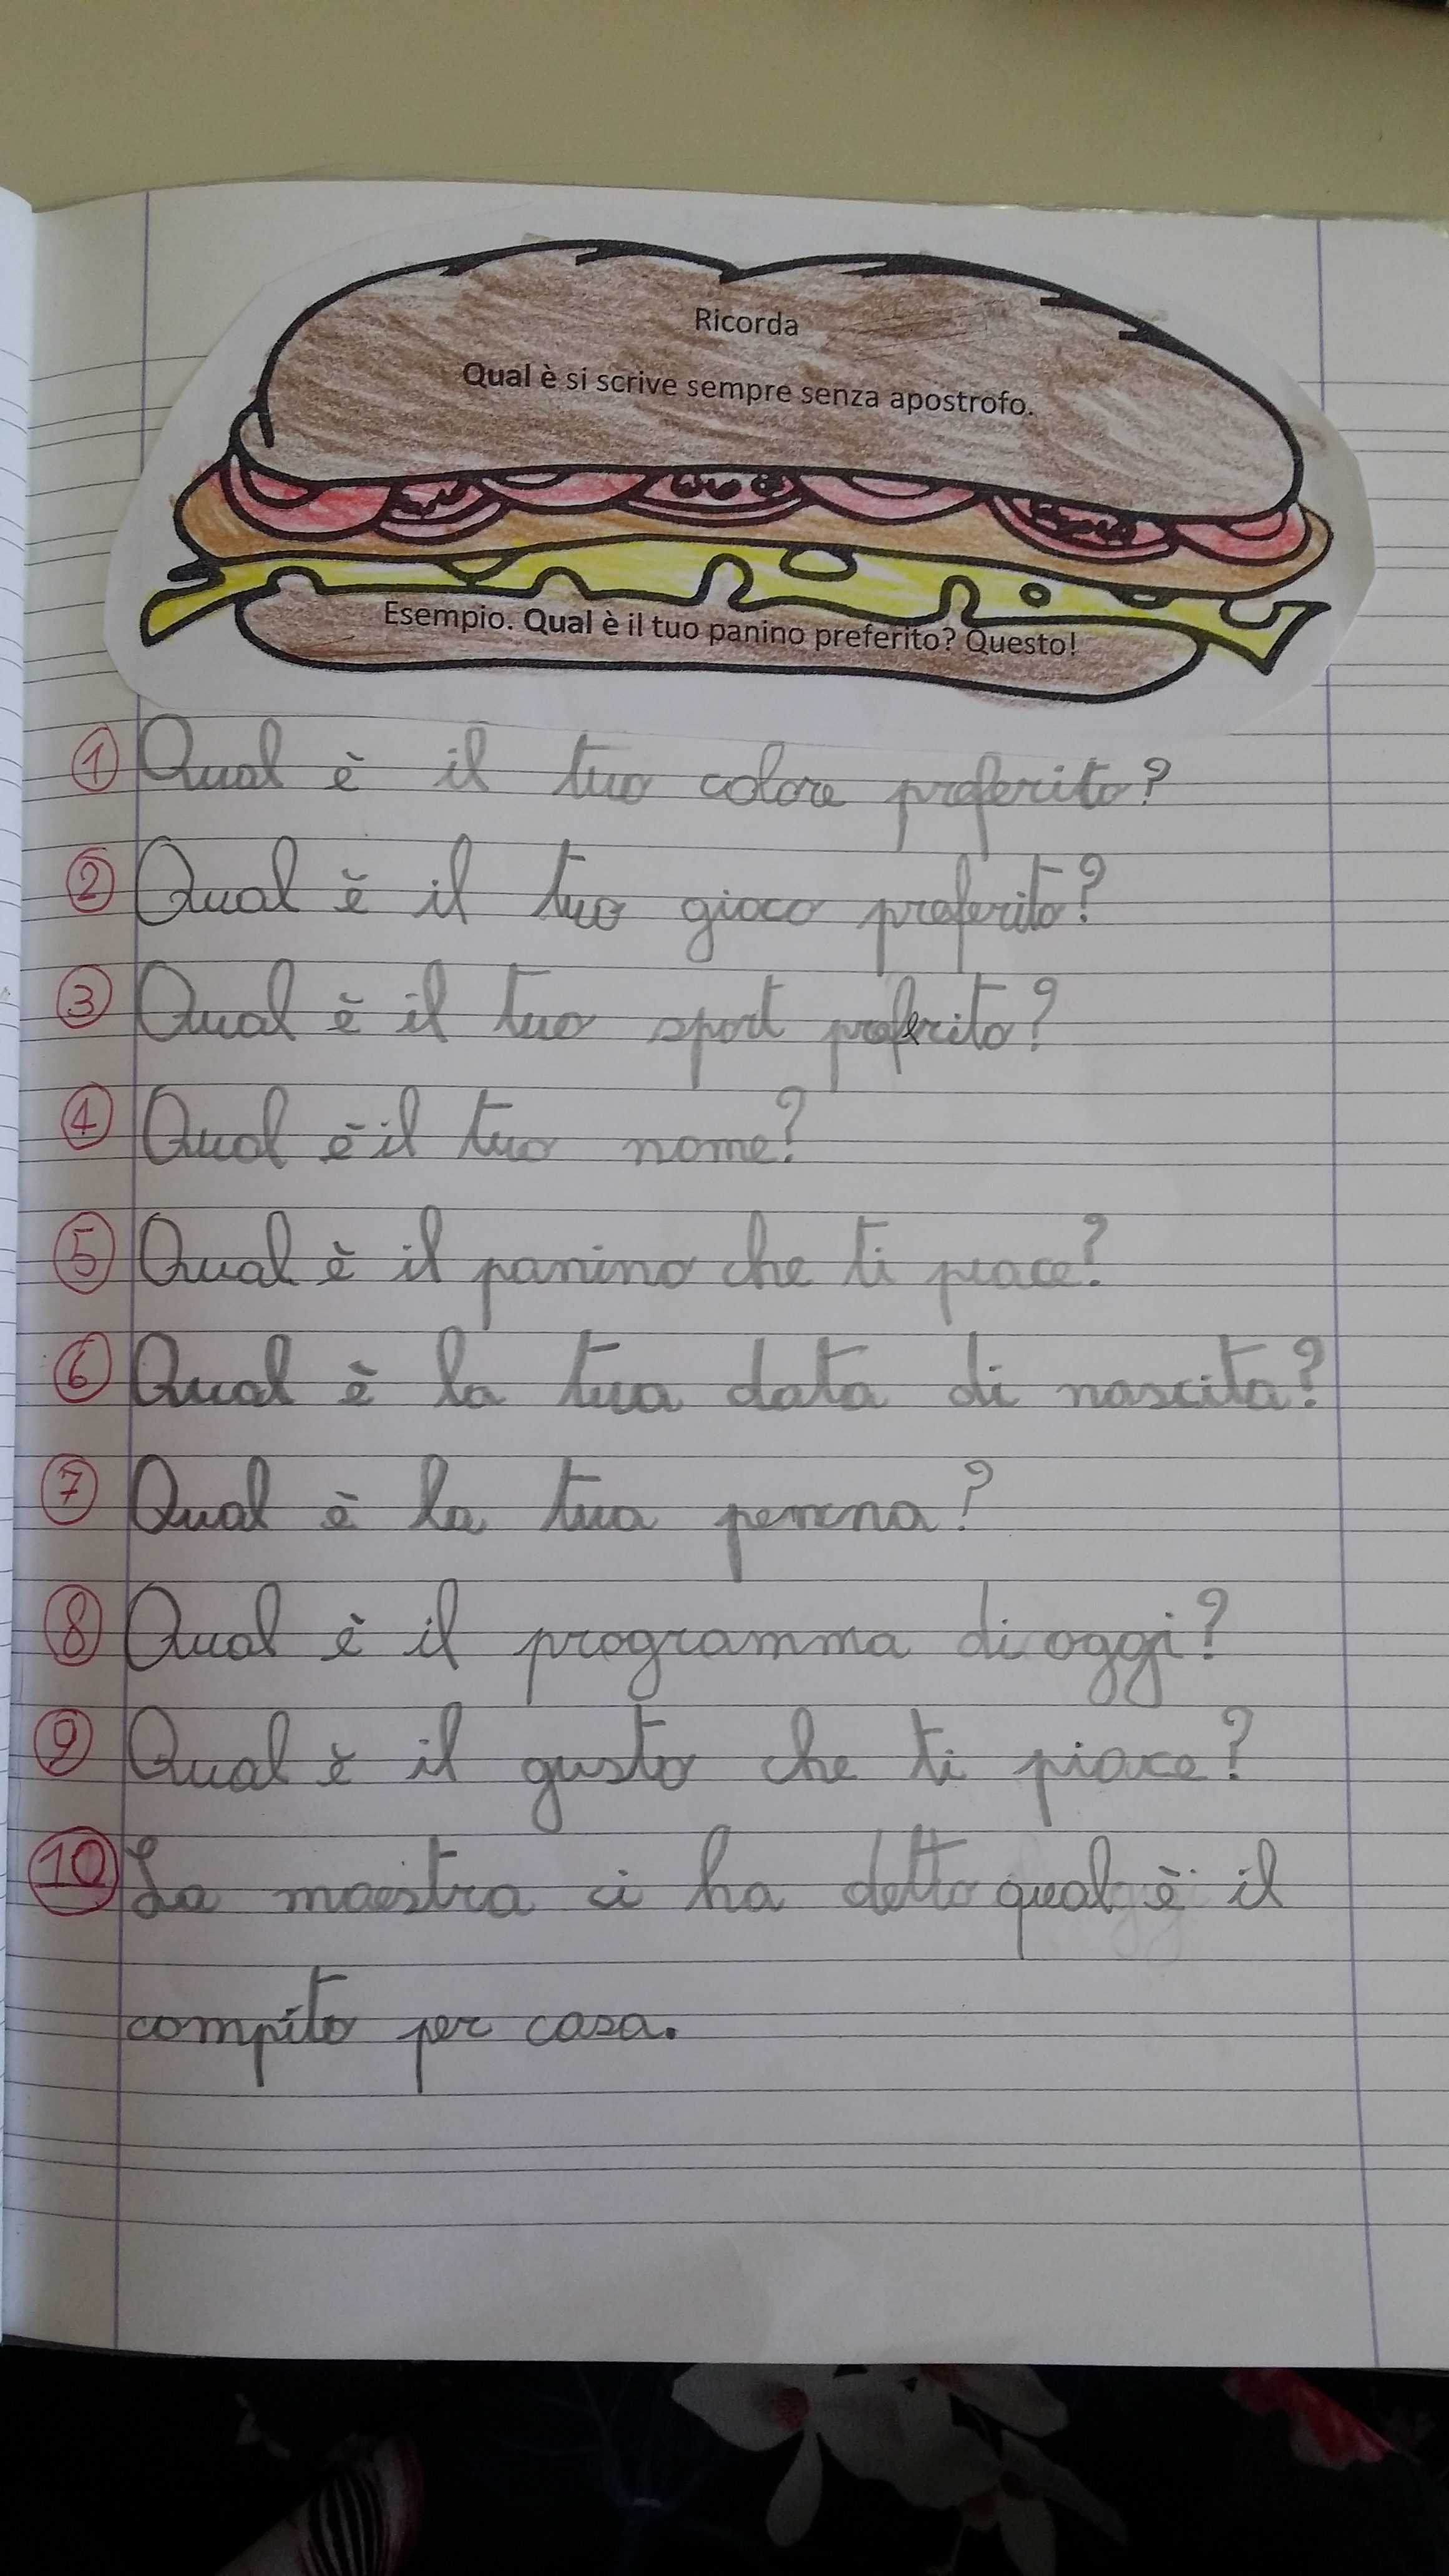 Ricorda
Qual è si scrive sempre senza apostrofo.
Esempio. Qual è il tuo panino preferito? Questo!
1 Qual è il tuo colore preferito?
2 Qual è il tuo gioco preferito?
3 Qual è il tuo sport preferito?
4 Qual è il tuo nome?
5 Qual è il panino che ti piace?
6 Qual è la tua data di nascita?
7 Qual è la tua penna?
8 Qual è il programma di oggi?
9 Qual è il gusto che ti piace?
10 La maestra ci ha detto qual è il
compito per casa.